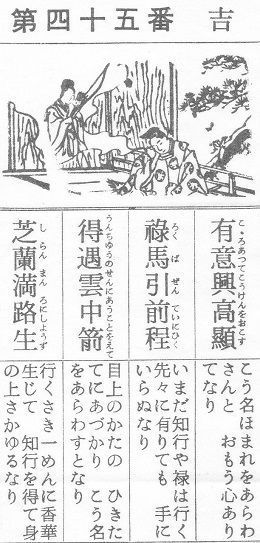 第四十五番 吉
こゝろあつてこうけんをおこす
有意興高顯
ろくばぜんていにひく
祿馬引前程
うんちゆうのせんにあうことをえて
得遇雲中箭
しらんまんろにしようず
芝蘭満路生
こう名ほまれをあらわ
さんと おもう心あり
てなり
いまだ知行や禄は行く
先々に有りても 手に
いらぬなり
目上のかたの ひきた
てにあづかり こう名
をあらわすとなり
行くさき 一めんに香華
生じて 知行を得て身
の上さかゆるなり